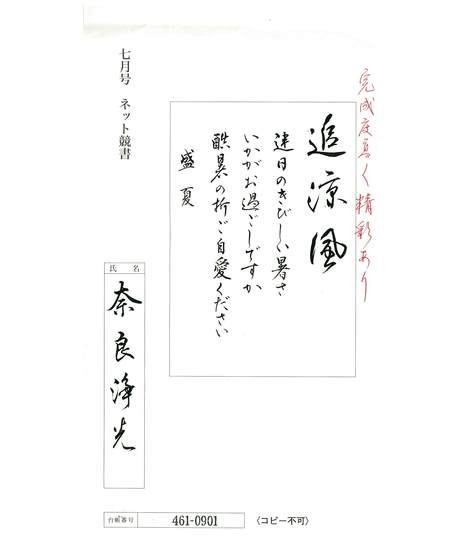 完成度高く精彩あり
追涼風
連日のきびしい暑さ
いかがお過ごしですか
酷暑の折ご自愛ください
盛夏
七月号 ネット競書
氏名
奈良浄光
台帳番号 461-0901 〈コピー不可〉